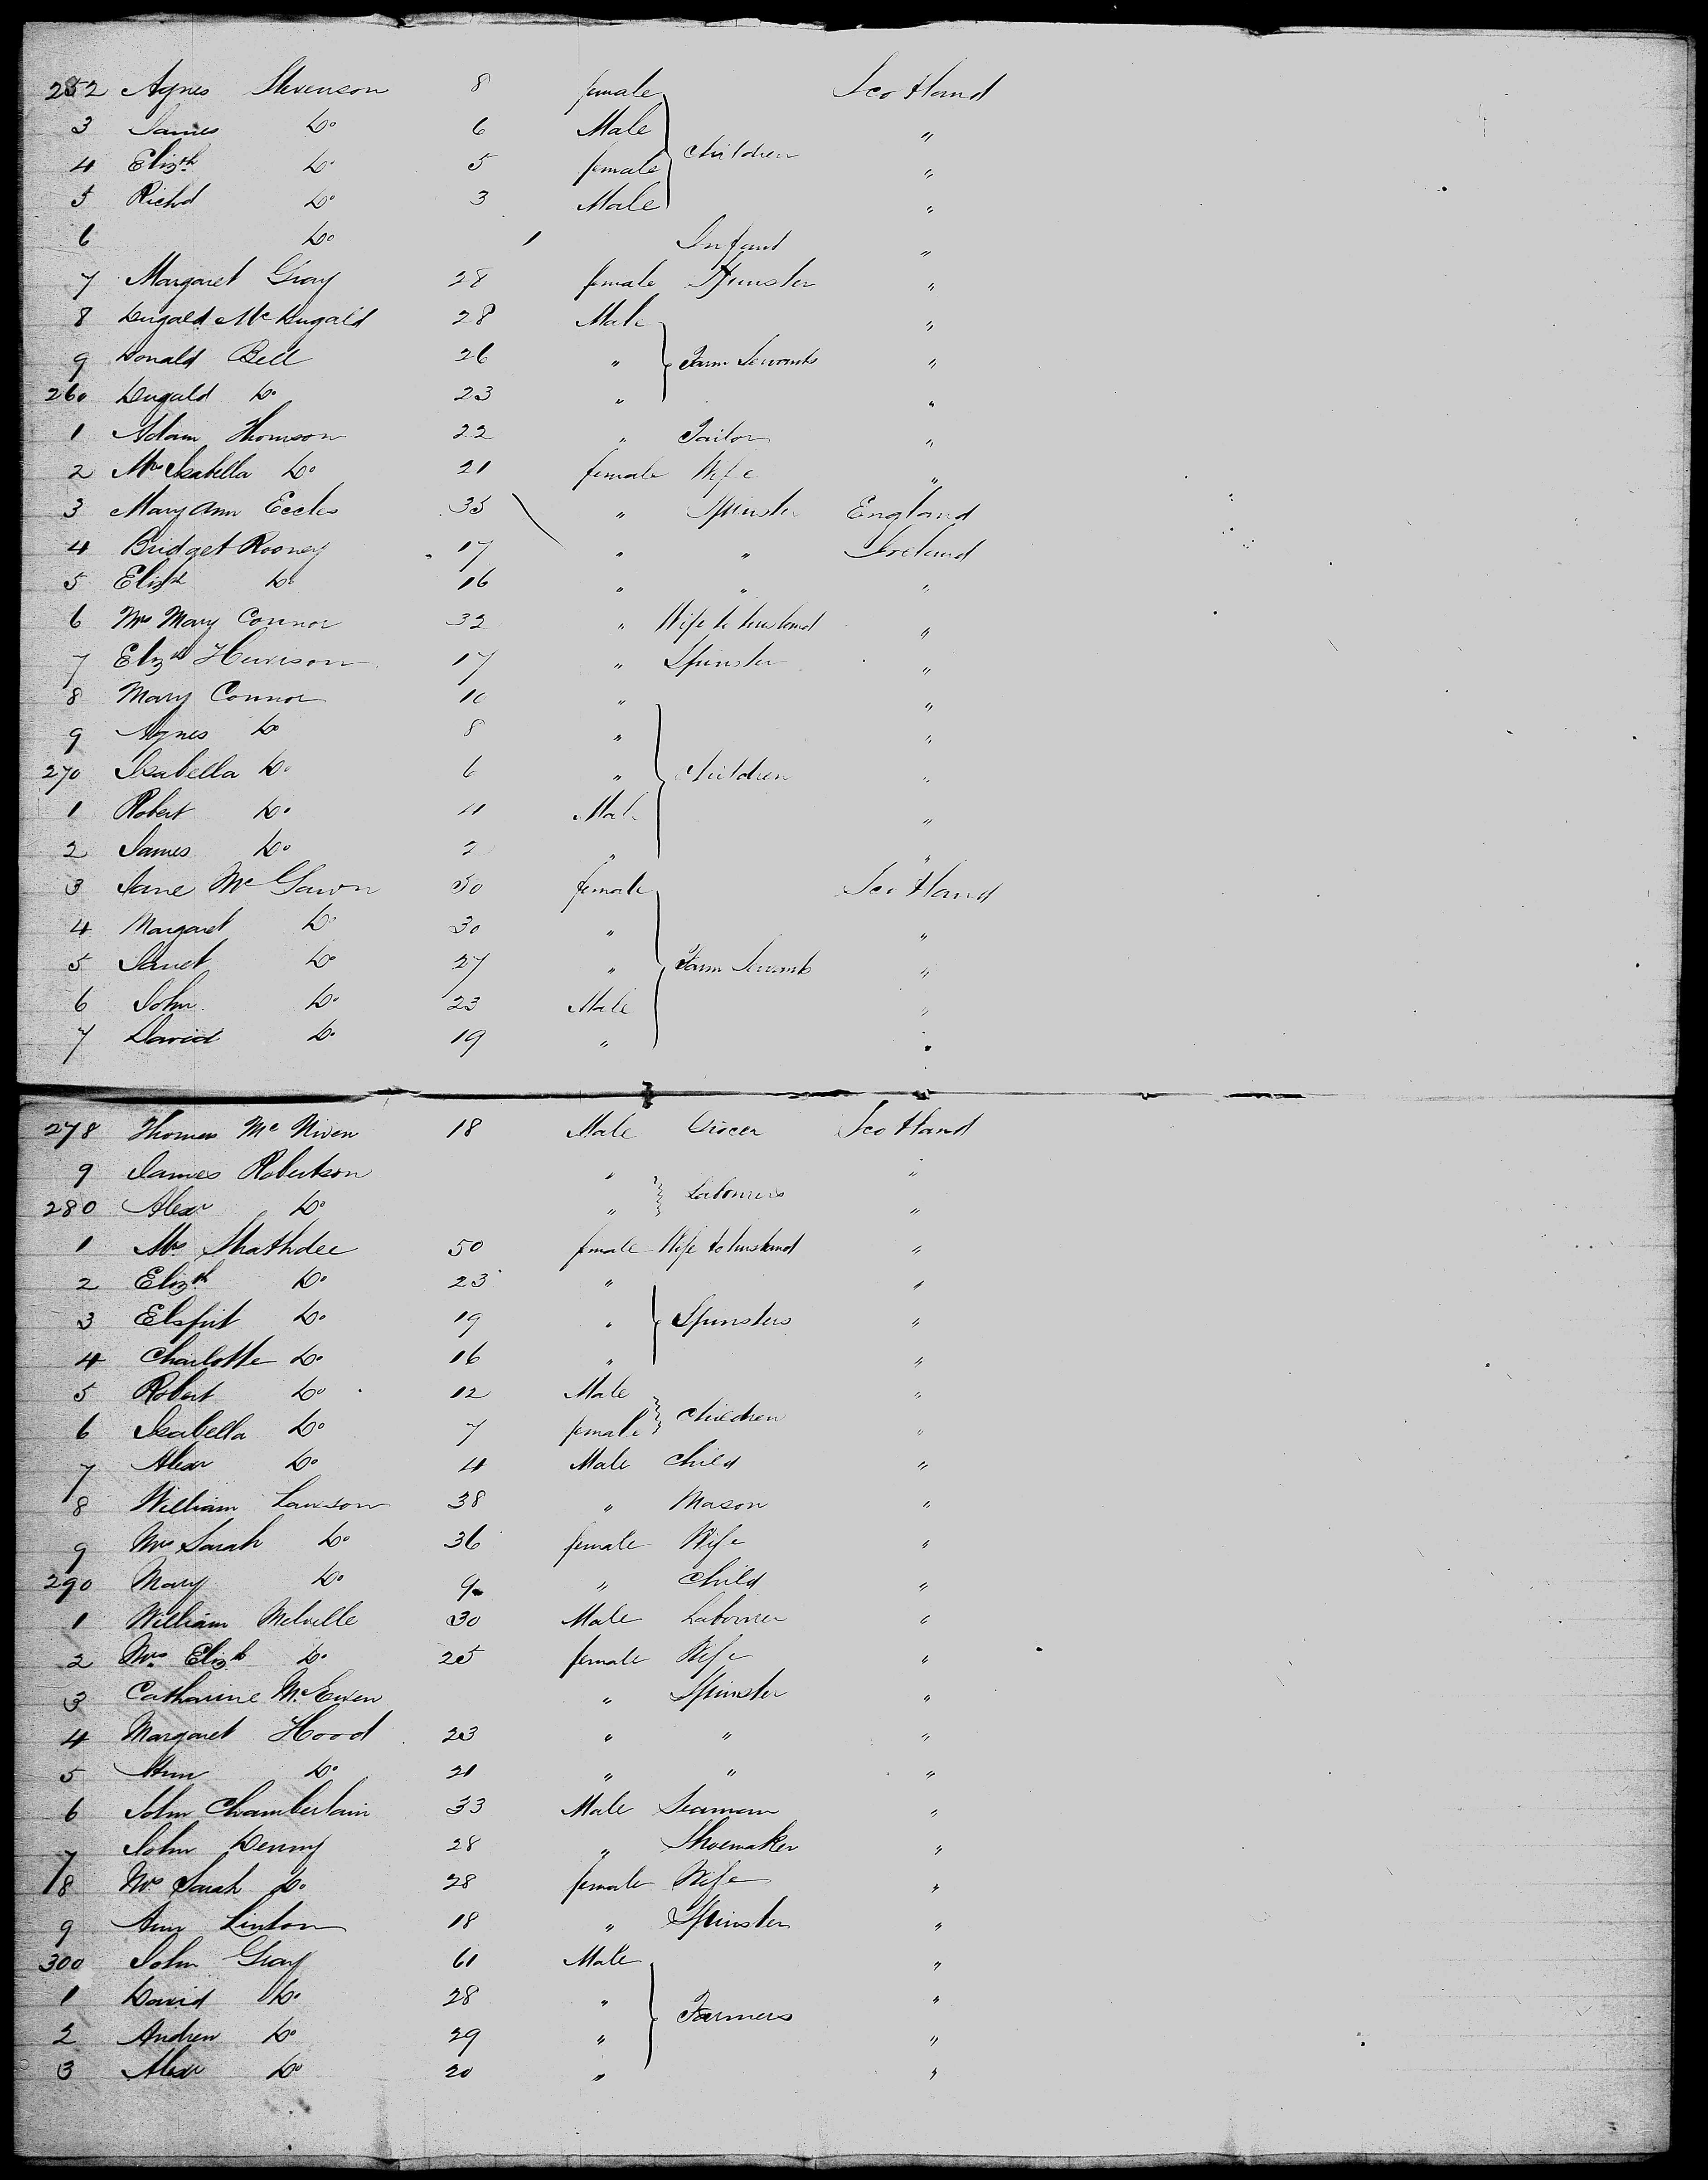 252 Agnes Stevenson 8 female Scotland
3 James Do 6 Male "
4 Elizth Do 5 female Children "
5 Richd Do 3 Male "
6 Do 1 Infant "
7 Margaret Gray 28 female Spinster "
8 Dugald McDugald 28 Male "
9 Donald Bell 26 " Farm Servants "
260 Dugald Do 23 " "
1 Adam Thomson 22 " Tailor "
2 Mrs Isabella Do 21 female Wife "
3 Mary Ann Eccles 35 " Spinster England
4 Bridget Rooney 17 " " Ireland
5 Elizth Do 16 " " "
6 Mrs Mary Connor 32 " Wife to husband "
7 Elizth 17 " Spinster "
8 Mary Connor 10 " "
9 Agnes Do 8 " "
270 Isabella Do 6 " Children "
1 Robert Do 4 Male "
2 James Do 2 " "
3 Jane Mc 50 female Scotland
4 Margaret Do 30 " "
5 Janet Do 27 " Farm Servants "
6 John Do 23 Male "
7 David Do 19 " "
278 Thomas McNiven 18 Male Grocer Scotland
9 James Robertson " "
280 Alexr Do " Labourers "
1 Mrs Strathdee 50 female Wife to husband "
2 Elizth Do 23 " "
3 Elspit Do 19 " Spinsters "
4 Charlotte Do 16 " "
5 Robert Do 12 Male "
6 Isabella Do 7 female Children "
7 Alexr Do 4 Male Child "
8 William Lawson 38 " Mason "
9 Mrs Sarah Do 36 female Wife "
290 Mary Do 9 " Child "
1 William Melville 30 Male Labourer "
2 Mrs Elizth Do 25 female Wife "
3 Catharine McEwen " Spinster "
4 Margaret Hood 23 " " "
5 Ann Do 21 " " "
6 John Chamberlain 33 Male Seaman "
7 John Denny 28 " Shoemaker "
8 Mrs Sarah Do 28 female Wife "
9 Ann Linton 18 " Spinster "
300 John Gray 61 Male "
1 David Do 28 " "
2 Andrew Do 29 " Farmers "
3 Alexr Do 20 " "